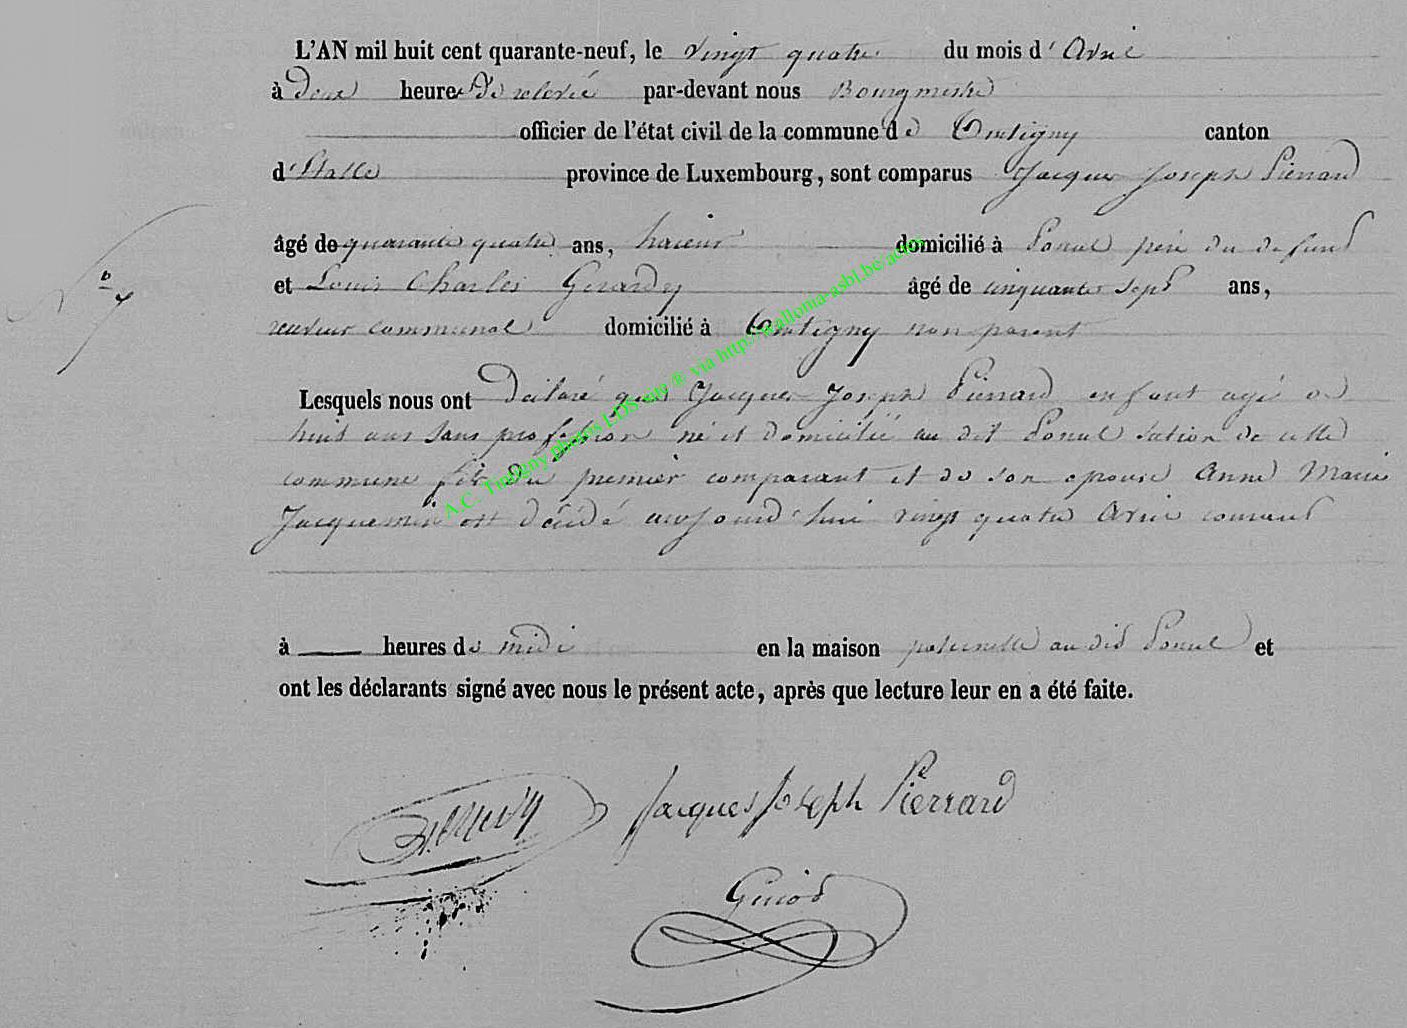 L'AN mil huit cent quarante-neuf, le vingt quatre du mois d'Avril
à deux heures de relevée par-devant nous Bourgmestre
officier de l'état civil de la commune de Tintigny canton
d'Etalle province de Luxembourg, sont comparus Jacques Joseph Pierrard
âgé de quarante quatre ans, domicilié à Ponsel père du defunt
et Louis Charles Gerardy âgé de cinquante sept ans,
receveur communal domicilié à Tintigny non parent
N° 7
Lesquels nous ont Déclaré que Jacques Joseph Pierrard enfant agé de
huit ans sans profession né et domicilié au dit Ponsel section de cette
commune fils du premier comparant et de son epouse Anne Marie
Jacquemin est décédé aujourd'hui vingt quatre Avril courant
à heures de midi en la maison paternelle au dit Ponsel et
ont les déclarants signé avec nous le présent acte, après que lecture leur en a été faite.
Jacques Joseph Pierrard
A.C. Tintigny photos LDS site ® via http://wallonia-asbl.be/actes